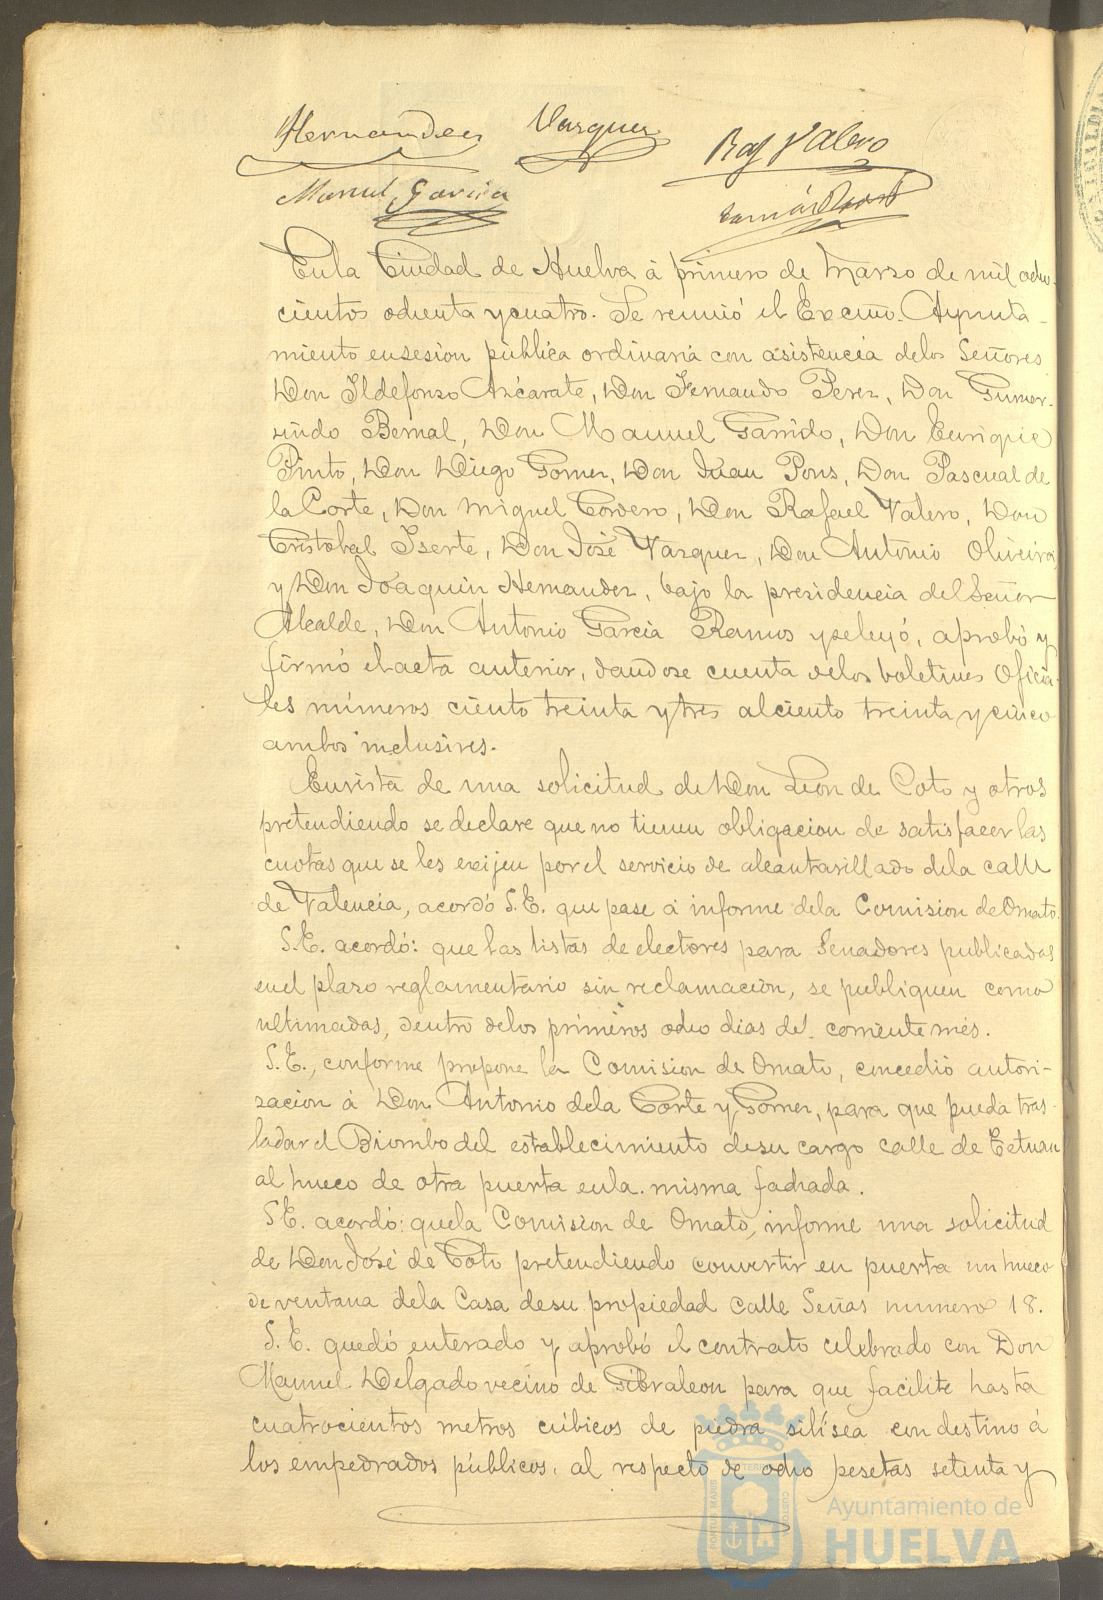 Hernandez Vazquez Raf Valero
Manuel Garcia Tomás
En la Ciudad de Huelva á primero de Marzo de mil ocho-
cientos ochenta y cuatro. Se reunió el Excmo. Ayunta-
miento en sesion pública ordinaria con asistencia de los Señores
Don Ildefonso Azcárate, Don Fernando Perez, Don Gumer-
sindo Bernal, Don Manuel Garrido, Don Enrique
Pinto, Don Diego Gomez, Don Juan Pons, Don Pascual de
la Corte, Don Miguel Cordero, Don Rafael Valero, Don
Cristobal Iserte, Don José Vazquez, Don Antonio Oliveira,
y Don Joaquin Hernandez, bajo la presidencia del Señor
Alcalde, Don Antonio Garcia Ramos y se leyó, aprobó y
firmó el acta anterior, dandose cuenta de los boletines Oficia-
les números ciento treinta y tres al ciento treinta y cinco
ambos inclusives.
En vista de una solicitud de Don Leon de Coto y otros
pretendiendo se declare que no tienen obligacion de satisfacer las
cuotas que se les exijen por el servicio de alcantarillado de la calle
de Valencia, acordó S.E. que pase á informe de la Comision de Ornato.
S.E. acordó: que las listas de electores para Senadores publicadas
en el plazo reglamentario sin reclamacion, se publiquen como
ultimadas, dentro de los primeros ocho dias del corriente més.
S.E., conforme propone la Comision de Ornato, concedió autori-
zacion á Don Antonio de la Corte y Gomez, para que pueda tras-
ladar el Biombo del establecimiento de su cargo calle de Tetuan
al hueco de otra puerta en la misma fachada.
S.E. acordó: que la Comision de Ornato, informe una solicitud
de Don José de Coto pretendiendo convertir en puerta un hueco
de ventana de la Casa de su propiedad calle Señas numero 18.
S.E. quedó enterado y aprobó el contrato celebrado con Don
Manuel Delgado vecino de Gibraleon para que facilite hasta
cuatrocientos metros cúbicos de piedra silísea con destino á
los empedrados públicos, al respecto de ocho pesetas setenta y
Ayuntamiento de
HUELVA